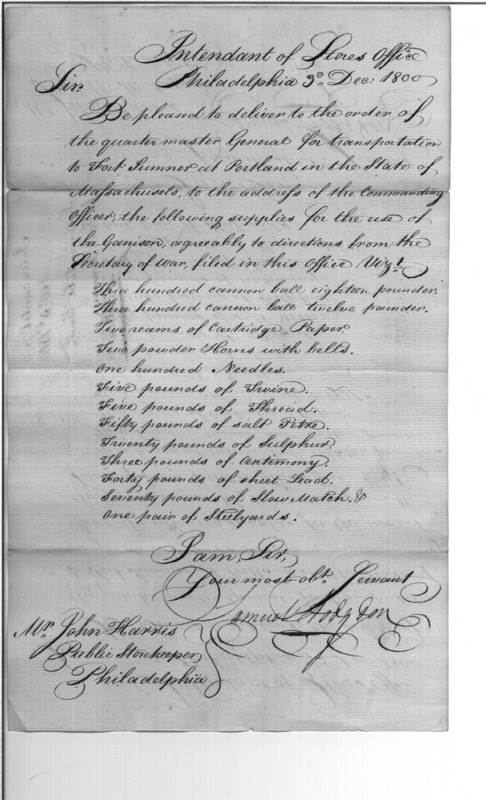 Intendant of Stores Office
Philadelphia 3d. Dec: 1800
Sir.
Be pleased to deliver to the order of
the quarter master General for transportation
to Fort Sumner at Portland in the State of
Massachusets, to the address of the Commanding
Officer, the following supplies for the use of
the Garrison, agreeably to directions from the
Secretary of War, filed in this Office Vizt.
Three hundred cannon ball eighteen pounder.
Three hundred cannon ball twelve pounder.
Two reams of Cartridge Paper.
Two powder Horns with belts.
One hundred Needles.
Five pounds of Twine.
Five pounds of Thread.
Fifty pounds of salt Petre.
Twenty pounds of Sulphur.
Three pounds of Antimony.
Forty pounds of sheet Lead.
Seventy pounds of Slow Match. &
One pair of Steelyards.
I am, Sir,
Your most obt. Servant
Samuel Hodgdon
Mr. John Harris
Public Storekeeper
Philadelphia